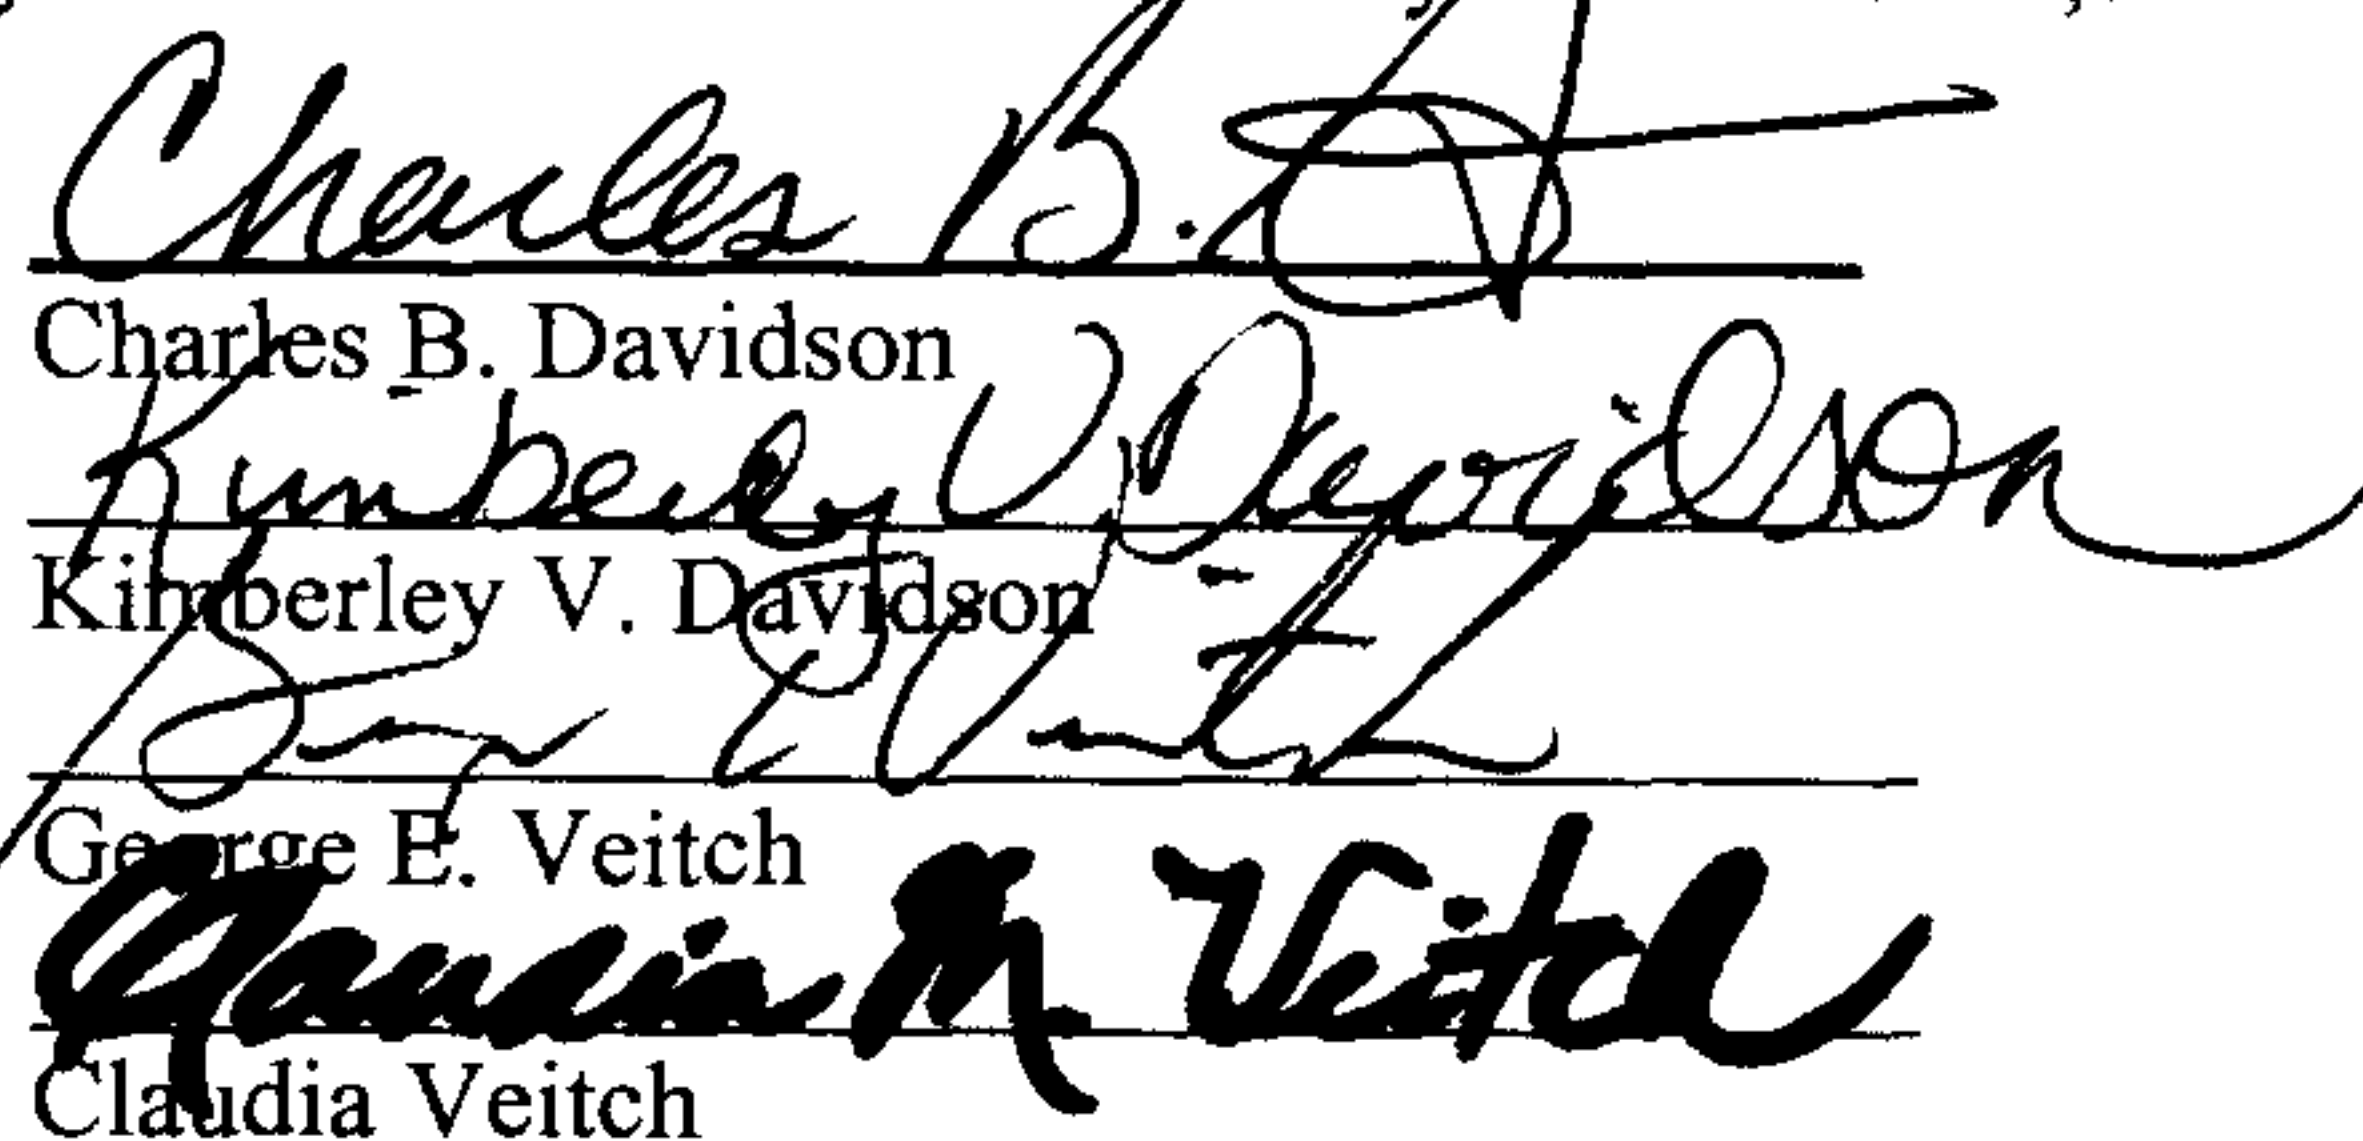 Charles B.
Charles B. Davidson
Kimberley V Davidson
Kimberley V. Davidson
George E Veitch
George E. Veitch
Claudia M Veitch
Claudia Veitch